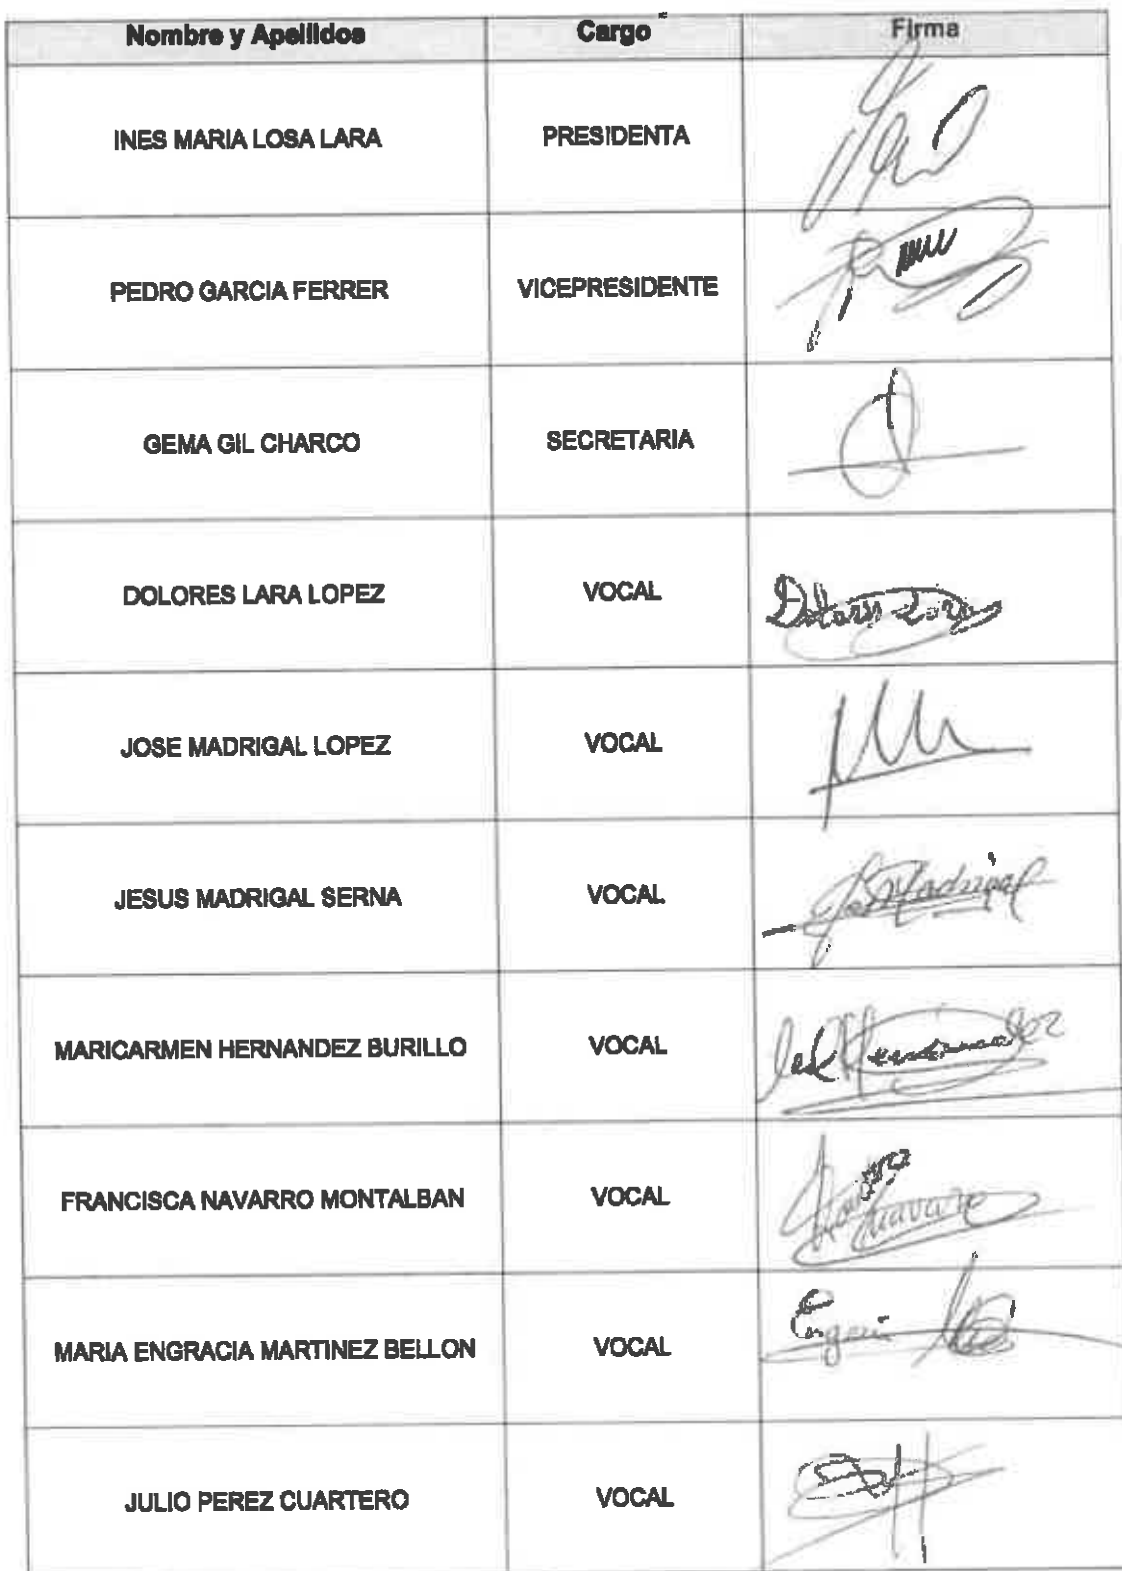 Nombre y Apellidos Cargo Firma
INES MARIA LOSA LARA PRESIDENTA
PEDRO GARCIA FERRER VICEPRESIDENTE
GEMA GIL CHARCO SECRETARIA
DOLORES LARA LOPEZ VOCAL Dolores Lara
JOSE MADRIGAL LOPEZ VOCAL
JESUS MADRIGAL SERNA VOCAL Madrigal
MARICARMEN HERNANDEZ BURILLO VOCAL Hernandez
FRANCISCA NAVARRO MONTALBAN VOCAL Navarro
MARIA ENGRACIA MARTINEZ BELLON VOCAL
JULIO PEREZ CUARTERO VOCAL